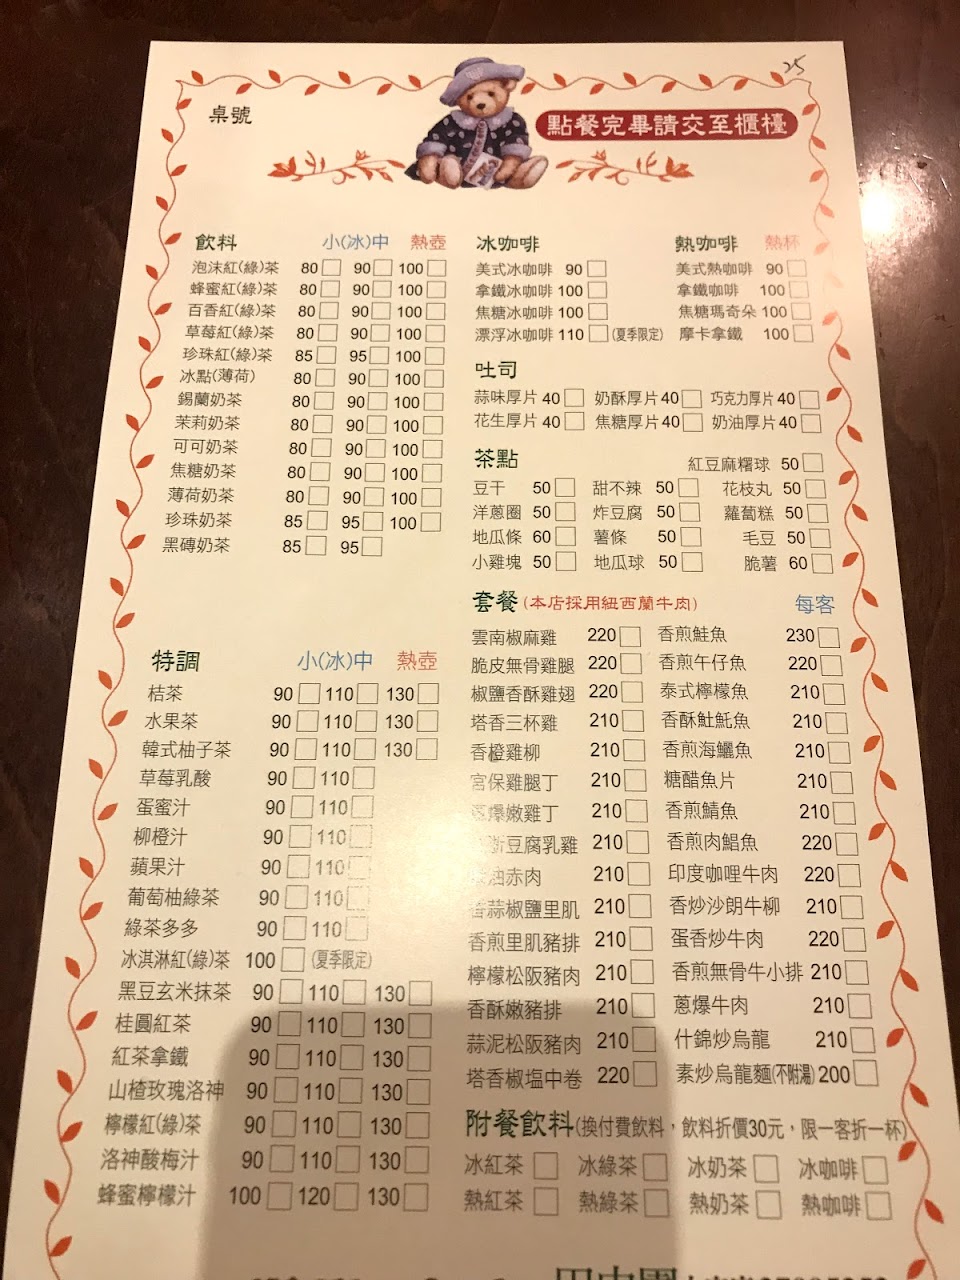 25
桌號
點餐完畢請交至櫃檯
飲料 小(冰)中 熱壺
泡沫紅(綠)茶 80 90 100
蜂蜜紅(綠)茶 80 90 100
百香紅(綠)茶 80 90 100
草莓紅(綠)茶 80 90 100
珍珠紅(綠)茶 85 95 100
冰點(薄荷) 80 90 100
錫蘭奶茶 80 90 100
茉莉奶茶 80 90 100
可可奶茶 80 90 100
焦糖奶茶 80 90 100
薄荷奶茶 80 90 100
珍珠奶茶 85 95 100
黑磚奶茶 85 95
特調 小(冰)中 熱壺
桔茶 90 110 130
水果茶 90 110 130
韓式柚子茶 90 110 130
草莓乳酸 90 110
蛋蜜汁 90 110
柳橙汁 90 110
蘋果汁 90 110
葡萄柚綠茶 90 110
綠茶多多 90 110
冰淇淋紅(綠)茶 100 (夏季限定)
黑豆玄米抹茶 90 110 130
桂圓紅茶 90 110 130
紅茶拿鐵 90 110 130
山楂玫瑰洛神 90 110 130
檸檬紅(綠)茶 90 110 130
洛神酸梅汁 90 110 130
蜂蜜檸檬汁 100 120 130
冰咖啡
美式冰咖啡 90
拿鐵冰咖啡 100
焦糖冰咖啡 100
漂浮冰咖啡 110 (夏季限定)
熱咖啡 熱杯
美式熱咖啡 90
拿鐵咖啡 100
焦糖瑪奇朵 100
摩卡拿鐵 100
吐司
蒜味厚片 40 奶酥厚片 40 巧克力厚片 40
花生厚片 40 焦糖厚片 40 奶油厚片 40
茶點 紅豆麻糬球 50
豆干 50 甜不辣 50 花枝丸 50
洋蔥圈 50 炸豆腐 50 蘿蔔糕 50
地瓜條 60 薯條 50 毛豆 50
小雞塊 50 地瓜球 50 脆薯 60
套餐(本店採用紐西蘭牛肉) 每客
雲南椒麻雞 220 香煎鮭魚 230
脆皮無骨雞腿 220 香煎午仔魚 220
椒鹽香酥雞翅 220 泰式檸檬魚 210
塔香三杯雞 210 香酥魠魠魚 210
香橙雞柳 210 香煎海鱺魚 210
宮保雞腿丁 210 糖醋魚片 210
爆嫩雞丁 210 香煎鯖魚 210
豆腐乳雞 210 香煎肉鯧魚 220
油赤肉 210 印度咖哩牛肉 220
香蒜椒鹽里肌 210 香炒沙朗牛柳 210
香煎里肌豬排 210 蛋香炒牛肉 220
檸檬松阪豬肉 210 香煎無骨牛小排 210
香酥嫩豬排 210 蔥爆牛肉 210
蒜泥松阪豬肉 210 什錦炒烏龍 210
塔香椒塩中卷 220 素炒烏龍麵(不附湯) 200
附餐飲料(換付費飲料，飲料折價30元，限一客折一杯)
冰紅茶 冰綠茶 冰奶茶 冰咖啡
熱紅茶 熱綠茶 熱奶茶 熱咖啡